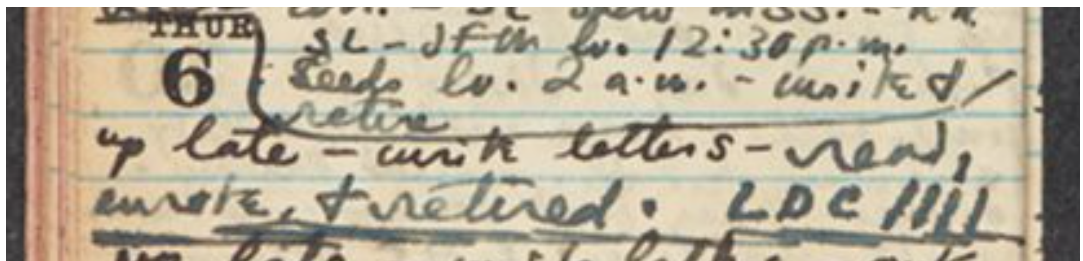 THUR
SL - JFM lv. 12:30 p.m.
6 Seeds lv. 2 a.m. - write &
retire
up late - write letters - read,
wrote, & retired. LDC ////
up late